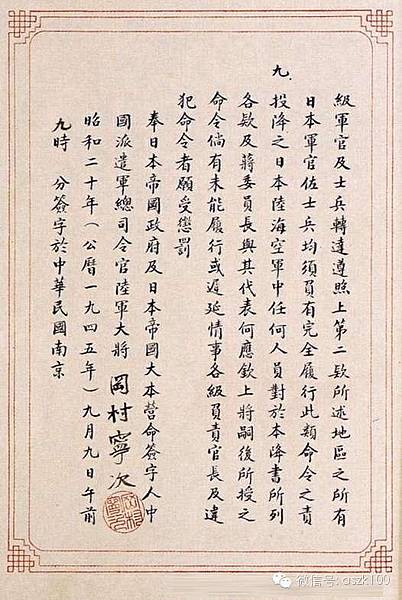 級軍官及士兵轉達遵照上第二款所述地區之所有
日本軍官佐士兵均須負有完全履行此類命令之責
九.
投降之日本陸海空軍中任何人員對於本降書所列
各款及蔣委員長與其代表何應欽上將嗣後所授之
命令倘有未能履行或遲延情事各級負責官長及違
犯命令者願受懲罰
奉日本帝國政府及日本帝國大本營命簽字人中
國派遣軍總司令官陸軍大將 岡村寧次
昭和二十年(公曆一九四五年)九月九日午前
九時 分簽字於中華民國南京
微信号: aszk100